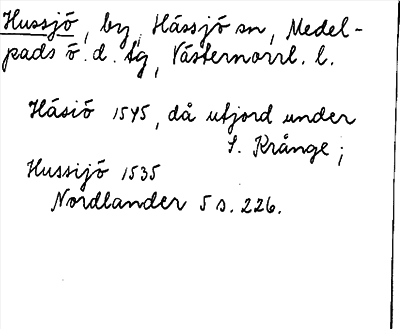 Hussjö, by, Hässjö sn, Medel-
pads ö. d. tg, Västernorrl. l.
Hásiö 1545, då utjord under
S. Krånge;
Hussijö 1535
Nordlander 5 s. 226.